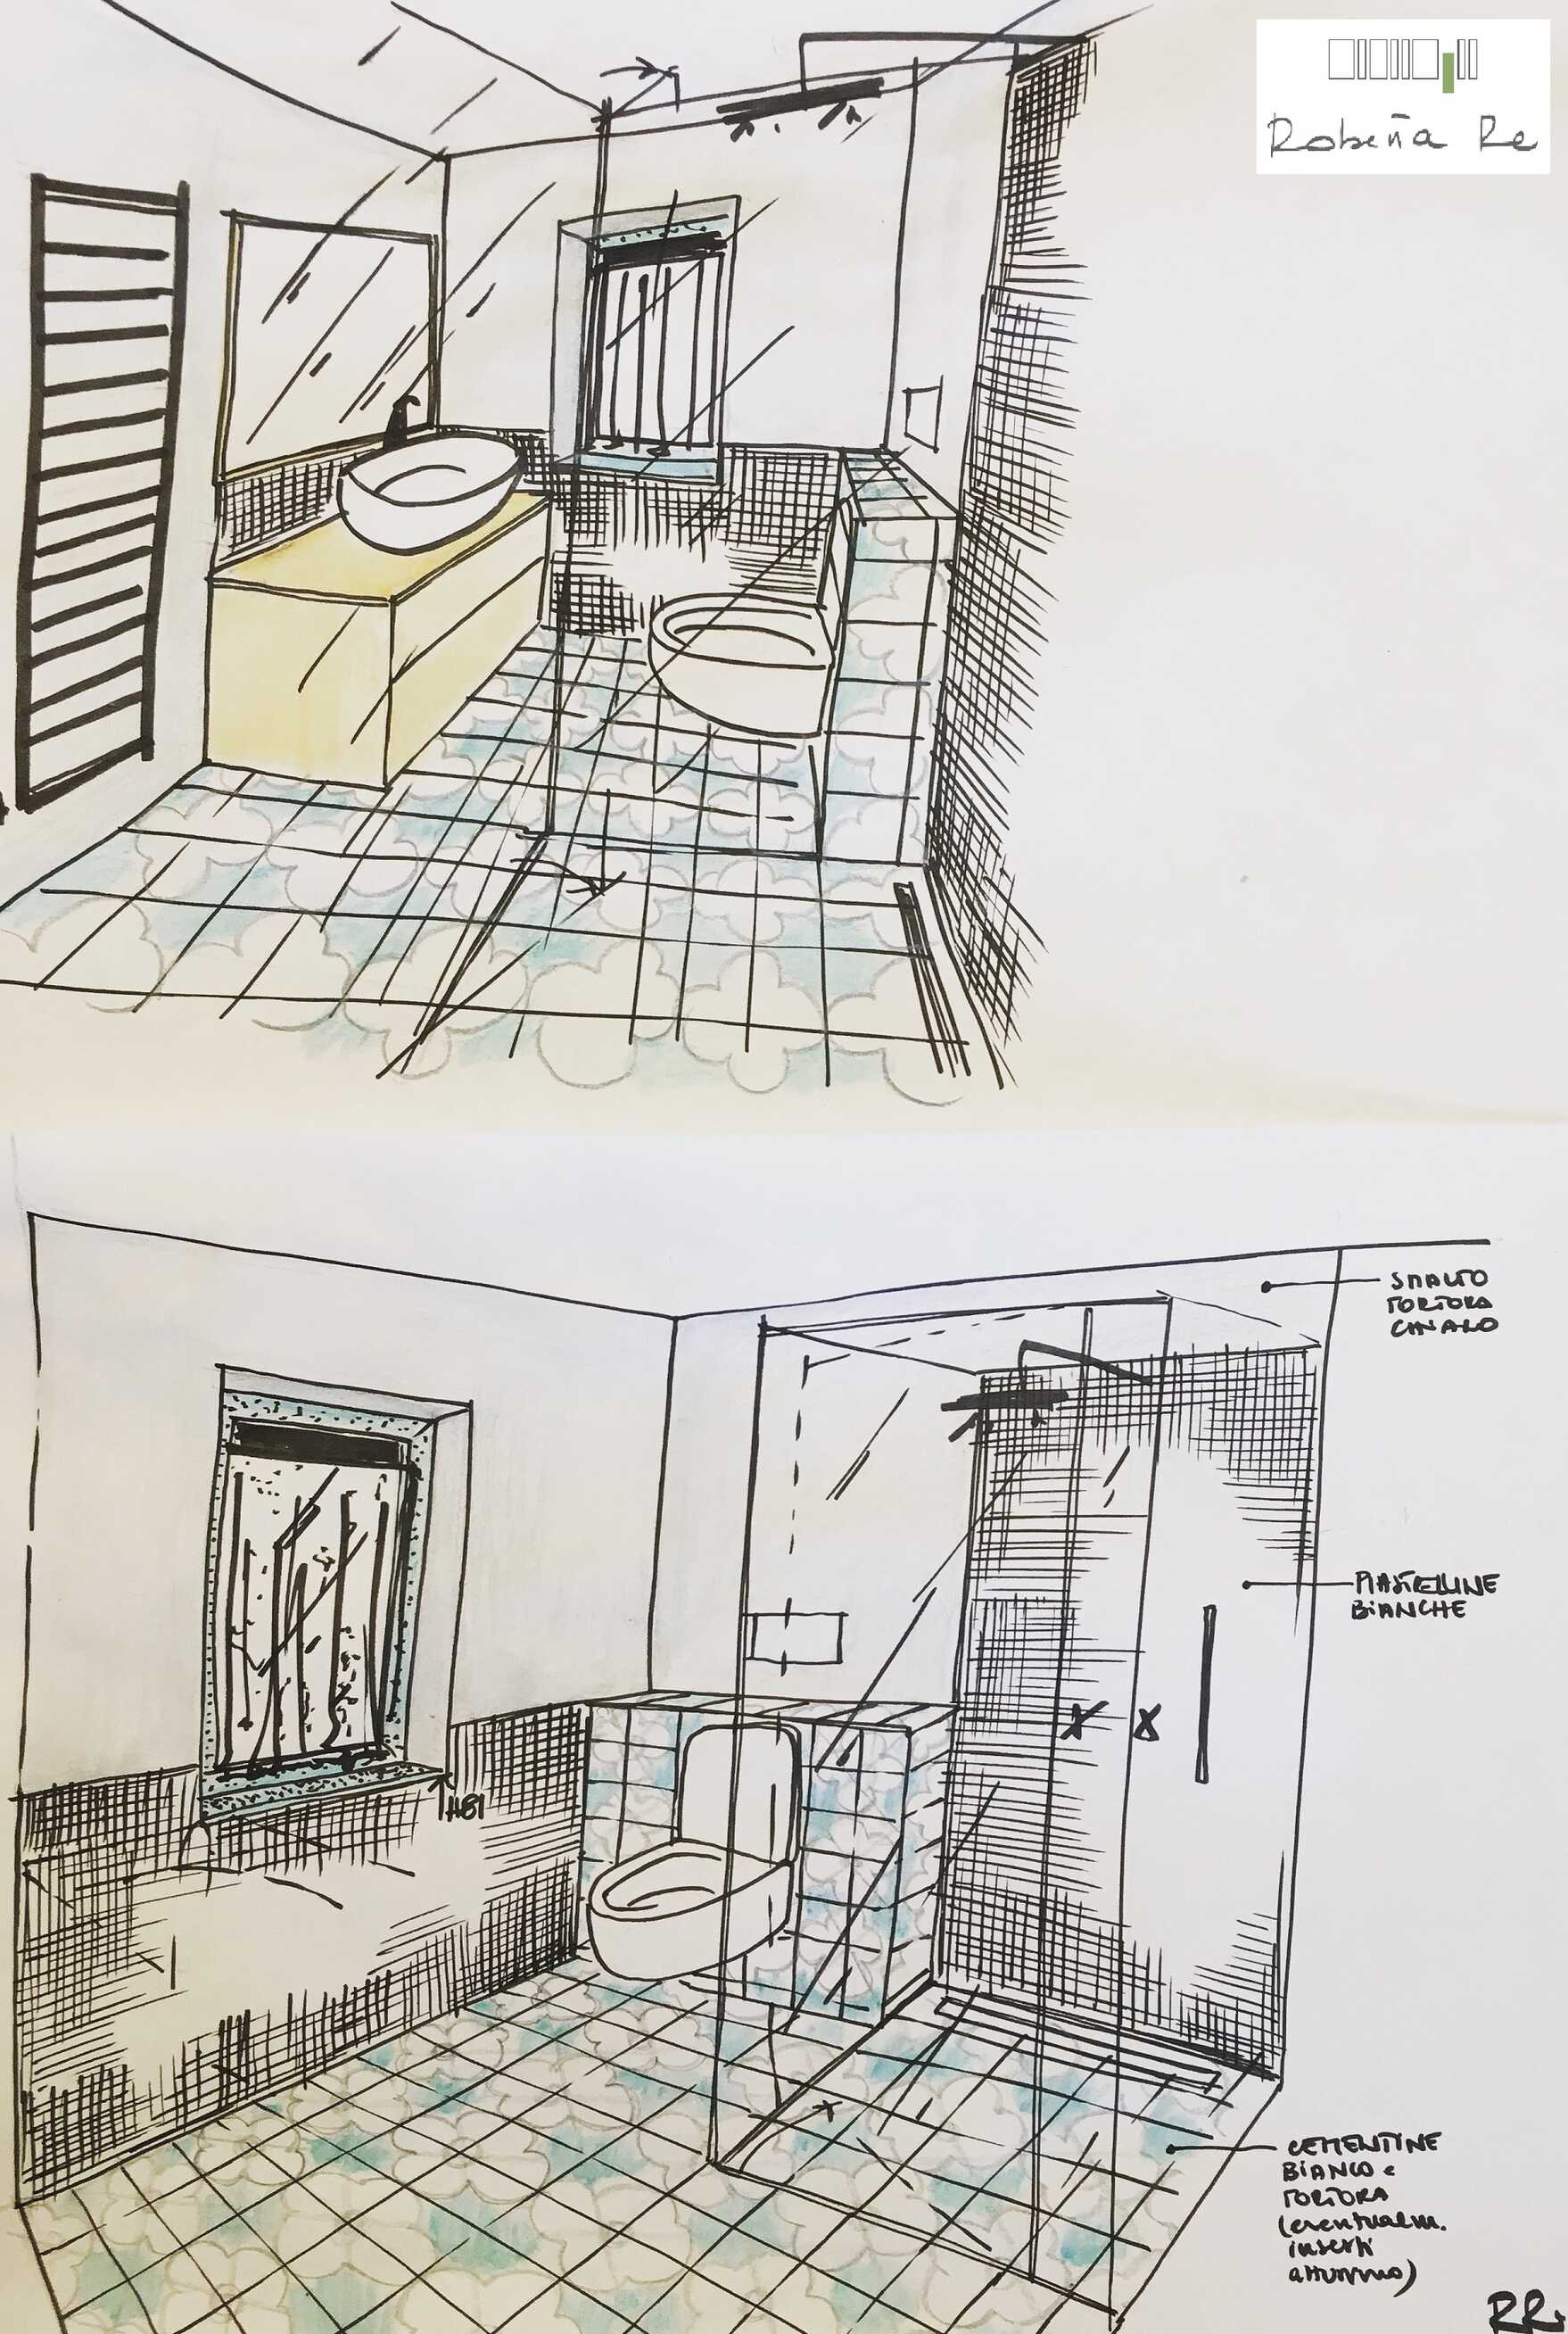 Roberta Re
SMALTO
TORTORA
CHIARO
PIASTRELLINE
BIANCHE
H81
CEMENTINE
BIANCO e
TORTORA
(eventualm.
inserti
ottunno)
RR.